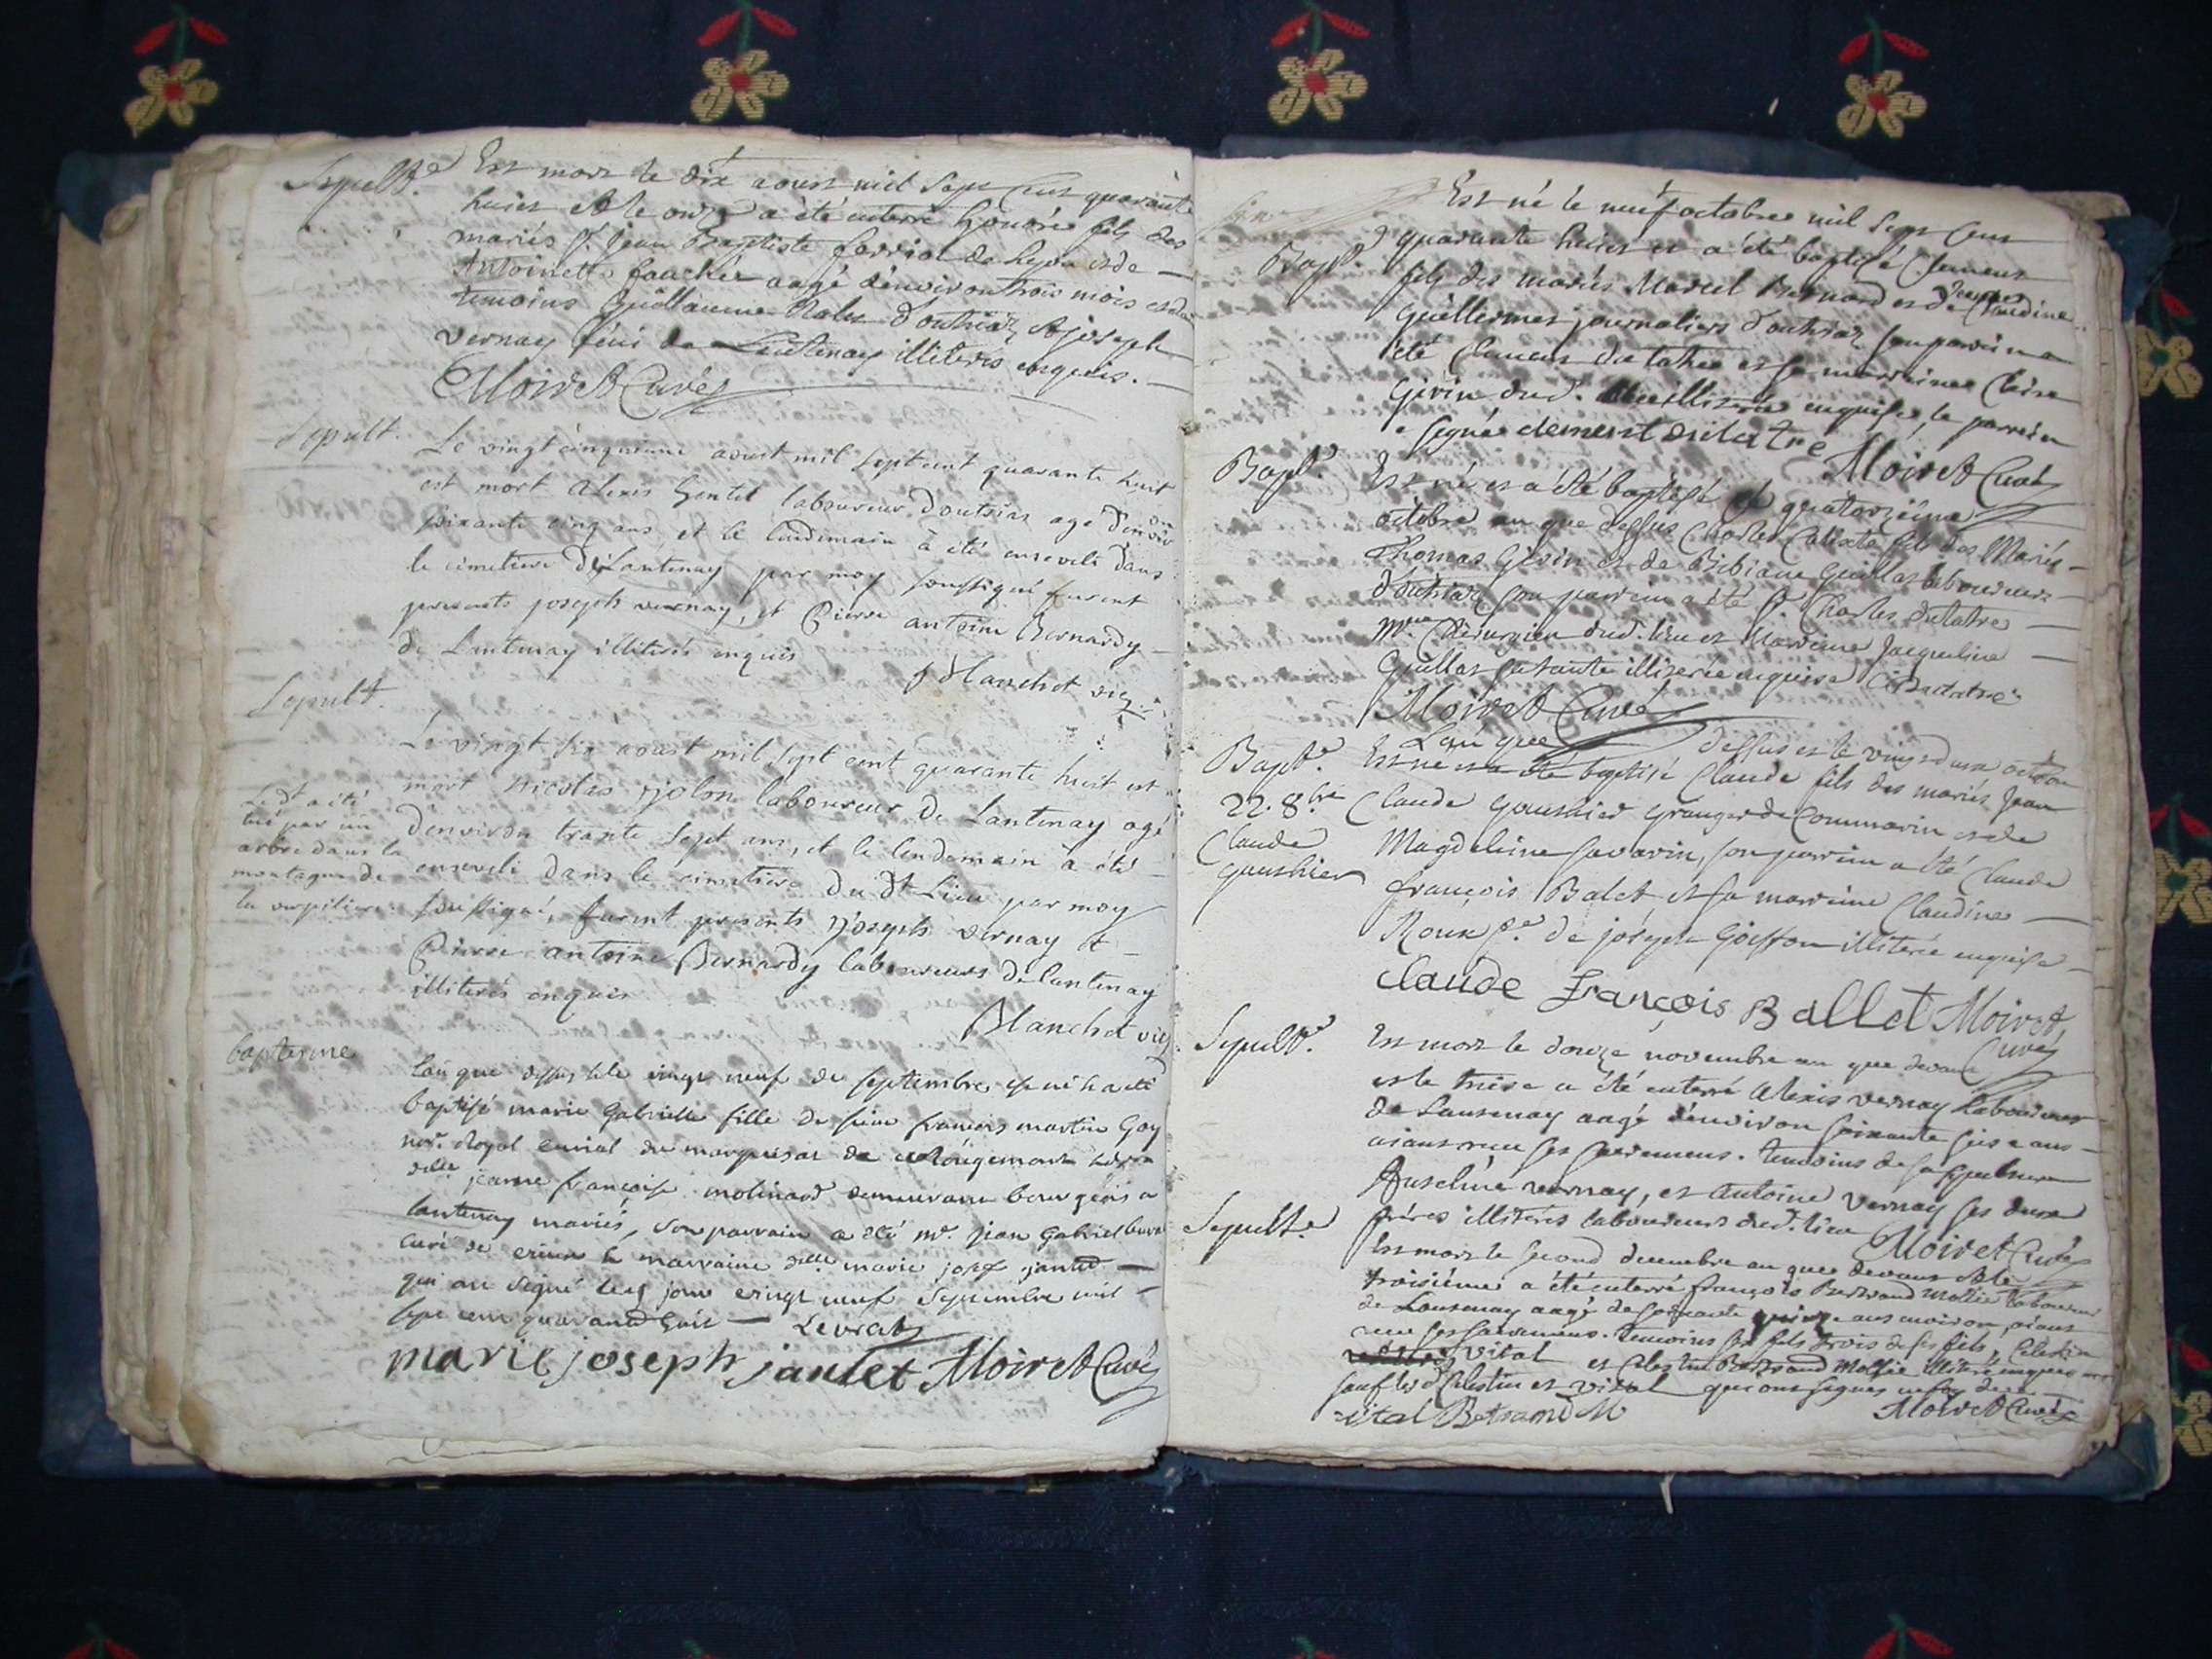 Sepult.e Est mort le dix aoust mil sept cens quarante
huict et le onze a été enterré honoré fils des
mariés Sr. jean Baptiste ferriol de Lyon et de
Antoinette fauchér aagé d'environ trois mois et de
temoins Guillaume d'outriaz et joseph
vernay féu de Lantenay illiterés enquis.
Moiret Curé
Sepult. Le vingt cinquieme aoust mil sept cent quarante huit
est mort alexis Gentil laboureur doutrias agé d'environ
soixante cinq ans, et le lendemain à été enseveli dans
le cimetiere de Lantenay par moy soussigné furent
presents joseph vernay, et Pierre antoine Bernardy
de Lantenay illiterés enquis
Blanchot vic.
Sepult. Le vingt six aoust mil sept cent quarante huit est
mort nicolas jolon laboureur de Lantenay agé
d'environ trante sept ans, et le lendemain à été
enseveli dans le cimetiere du dt Lieu par moy
soussigné, furent presents joseph vernay et
Pierre antoine Bernardy laboureurs de lantenay
illiterés enquis
Blanchot vic
Le dt a été
tué par un
arbre dans la
montagne de
la
baptesme
L'an que dessus et le vingt neuf de septembre est né et a eté
baptisé marie Gabrielle fille de sieur francois martin Goy
nore. Royal curial du marquisat de Rougemont et de
delle jeanne francoise molinard demeurant bourgeois a
lantenay mariés, son parrain a eté mr. jean Gabriel
curé de et marraine delle marie josephe jantet
qui ont signé ledt jour vingt neuf septembre mil
sept cent quarante huit Levrat
marie joseph jantet Moiret Curé
Est né le neuf octobre mil sept cens
Bapt.e quarante huict et a été baptisé Clement
fils des mariés Marcel Bernard et de Claudine
Guillermet journaliers d'outriaz son parrain a
été Clement dutatre et sa marraine Claire
Gerin dud. illiterée enquise, le parrain
a signé clement dutatre Moiret Curé
Bapt.e Est né et a été baptisé le quatorzieme
octobre an que dessus Charles Calixte fils des Mariés
Thomas Gerin et de Bibiane Guillot laboureurs
d'outriaz son parrain a été Sr. Charles dutatre
Mre. Chirurgien dud. lieu et Marraine Jacqueline
Guillot sa tante illiterée enquise C. Dutatre
Moiret Curé
L'an que dessus et le vingt deux octobre
Bapt.e Est né et a été baptisé Claude fils des mariés Jean
22. 8bre Claude gauthier granger de Commarin et de
Claude Magdeleine savarin, son parrain a été Claude
gauthier françois Balet et sa marraine Claudine
Roux fe. de joseph Goiffon illiterée enquise
Claude François Ballet Moiret
Curé
Sepult.e Est mort le douze novembre an que devant
et le treise a été enterré Alexis vernay Laboureur
de Lantenay aagé d'environ soixante seise ans
aiant receu ses sacremens. temoins de sa sepulture
Anselme vernay, et Antoine vernay ses deux
fréres illiterés laboureurs dud. lieu Moiret Curé
Sepult.e Est mort le second decembre an que devant et le
troisiéme a été enterré françois Bertrand Mollie laboureur
de Lantenay aagé de soixante quinze ans environ, aiant
receu ses sacremens. temoins trois de ses fils, Celestin
vital et Celestin Bertrand Mollie illiterés enquis
sauf lesd. Celestin et vital qui ont signés
vital Betrand M Moiret Curé